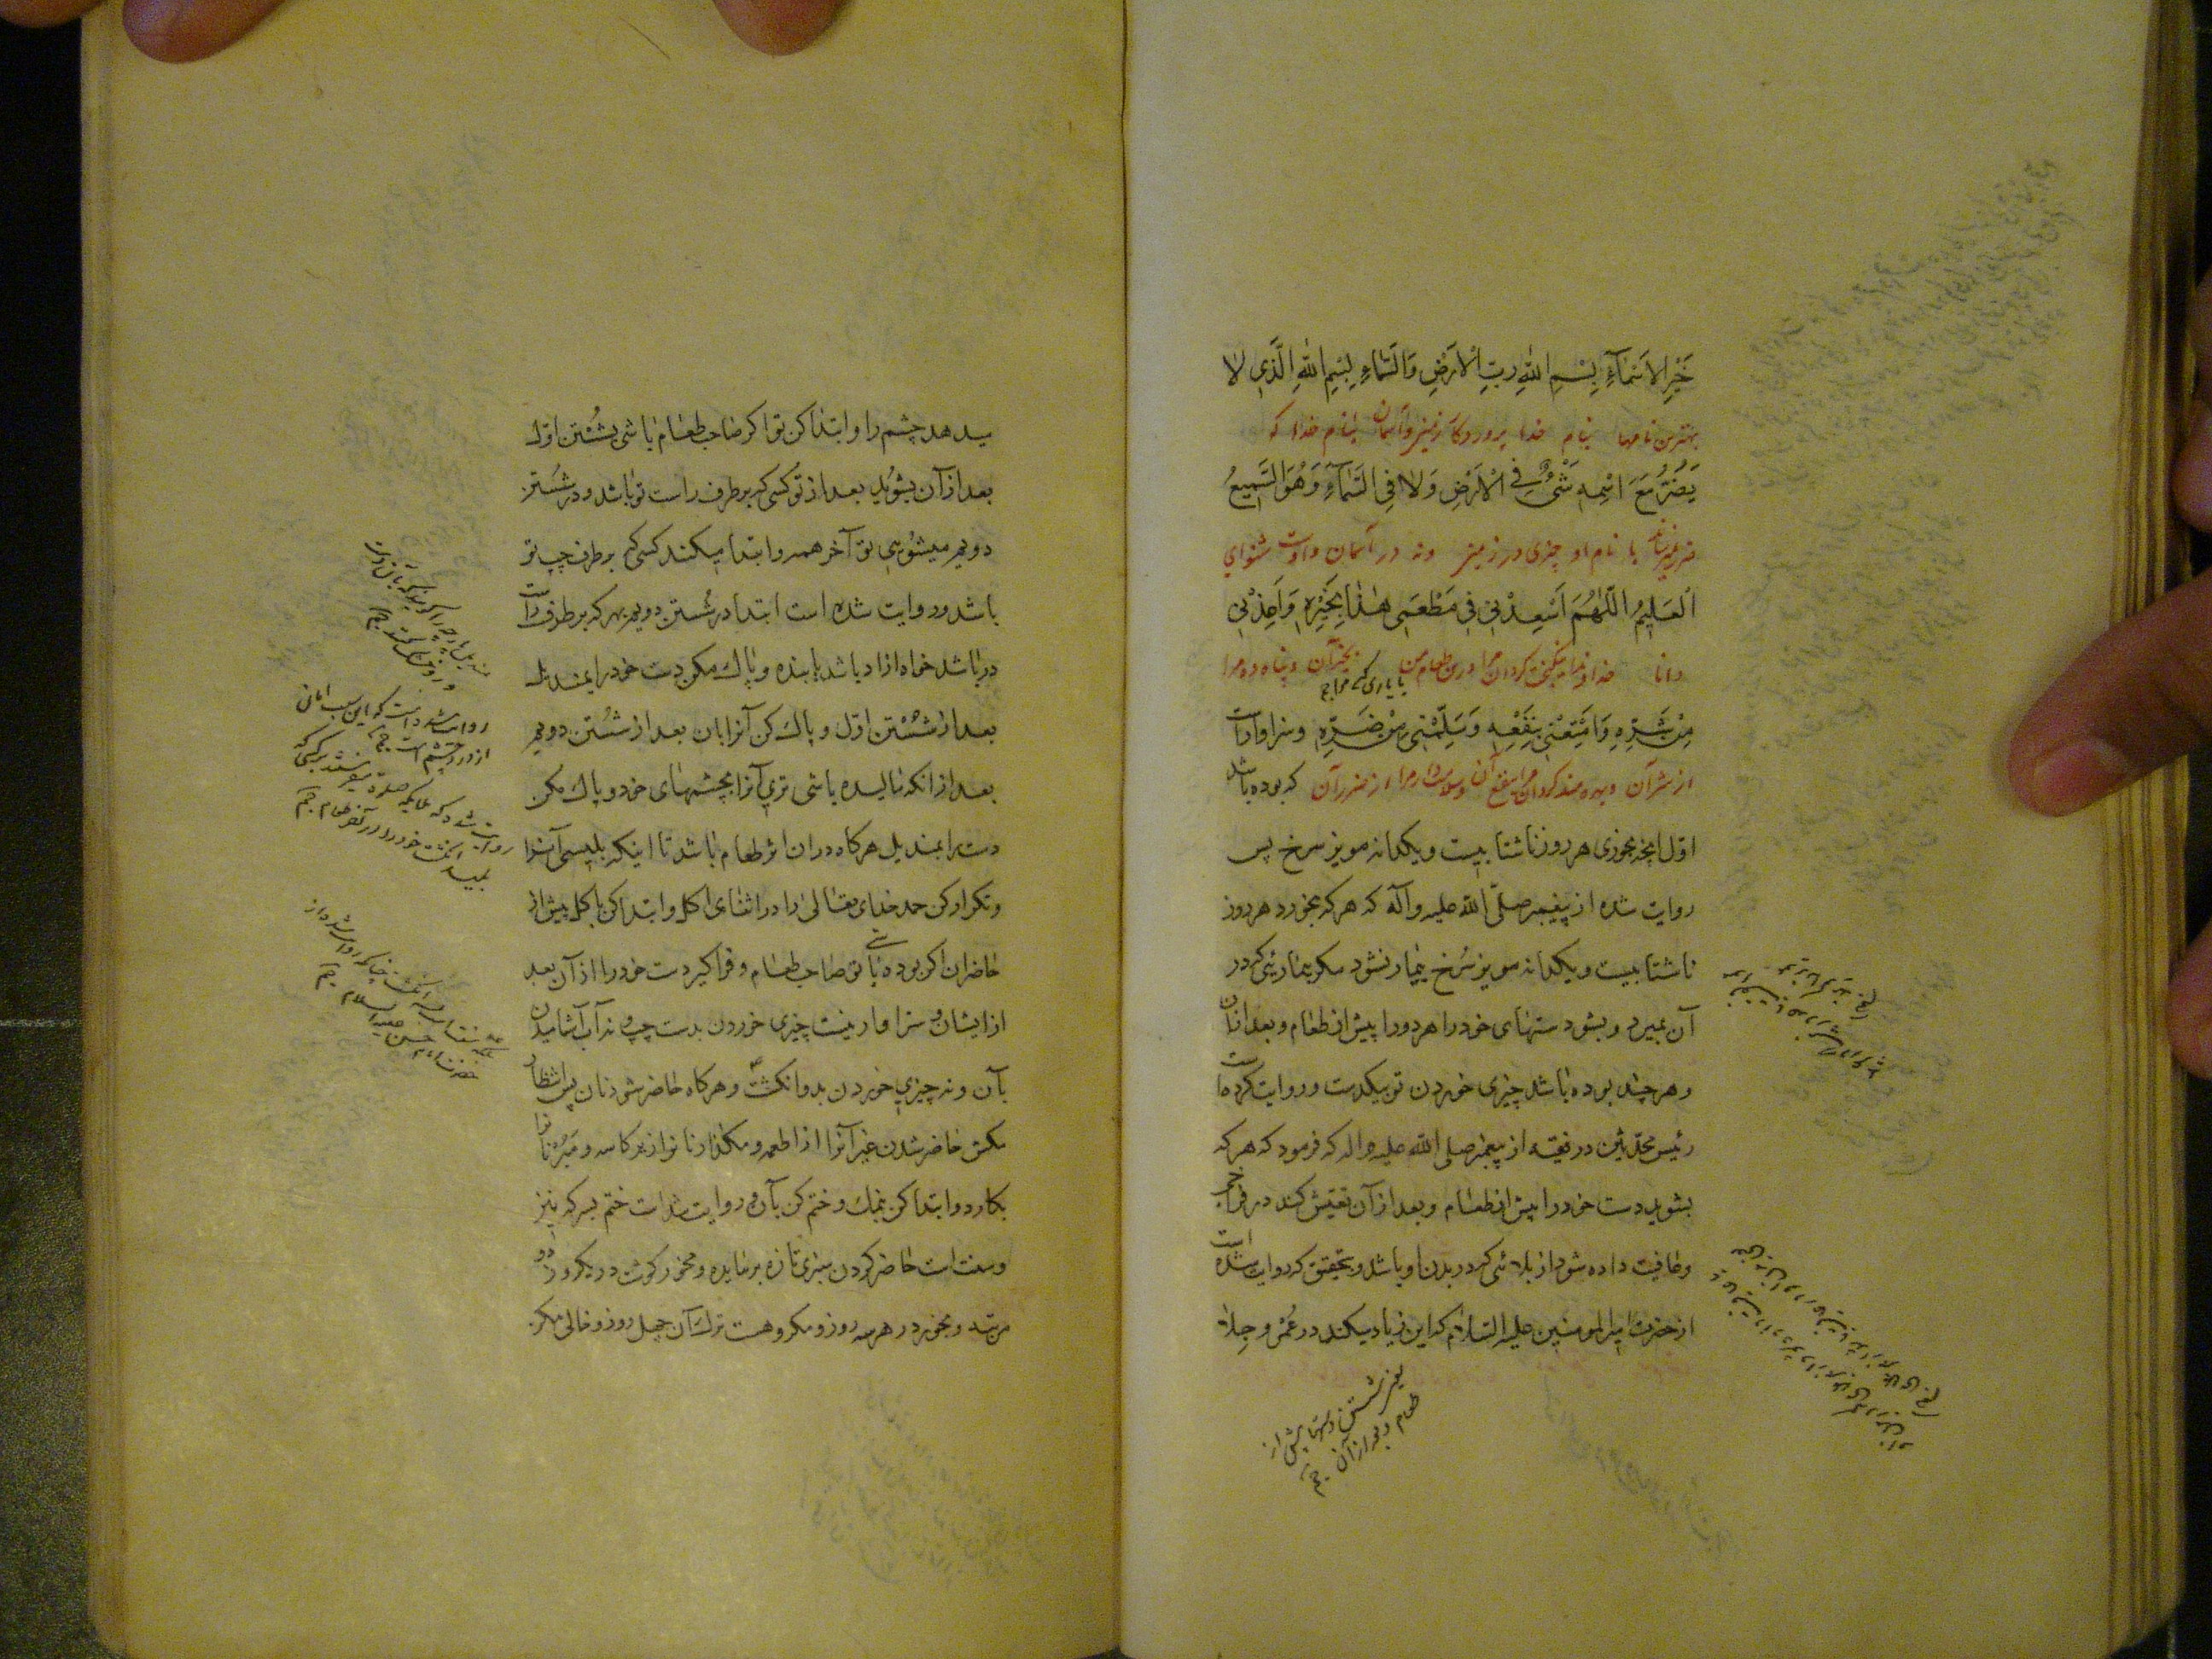 خَيْرِ الاَسْمٰآءِ بِسْمِ اللّٰهِ رَبِّ الْاَرْضِ وَالسَّمٰاءِ بِسْمِ اللّٰهِ الَّذي لا
بهترین نامها بنام خدا پروردگار زمین و آسمان بنام خدا که
يَضُرُّ مَعَ اسْمِهِ شَيْءٌ فِي الْاَرْضِ وَلا فِي السَّمٰآءِ وَهُوَ السَّميعُ
ضرر نمیرساند با نام او چیزی در زمین و نه در آسمان و اوست شنوای
الْعَليمُ اللّٰهُمَّ اَسْعِدْني في مَطْعَمي هٰذا بِخَيْرِهِ وَاَعِذْني
دانا خداوندا نیکبخت گردان مرا درین طعام من بخیر آن و پناه ده مرا
یا یاری کن مرا
مِنْ شَرِّهِ وَاَمْتِعْني بِنَفْعِهِ وَسَلِّمْني مِنْ ضَرِّهِ و سزاوار است
از شر آن و بهره مند گردان مرا بنفع آن و سلامت دار مرا از ضرر آن که بوده باشد
اوّل آنچه بخوری هر روز ناشتا بیست و یکدانه مویز سرخ پس
روایت شده از پیغمبر صلّی اللّه علیه و آله که هر که بخورد هر روز
ناشتا بیست و یکدانه مویز سُرخ بیمار نشود مکر بیمارئی که در
آن بمیرد و بشو دستهای خود را هر دو را پیش از طعام و بعد از آن
و هر چند بوده باشد چیزی خوردن تو بیکدست و روایت کرده است
رئیس محدّثین در فقیه از پیغمبر صلی اللّه علیه و اله که فرمود که هر که
بشوید دست خود را پیش از طعام و بعد از آن تعیّش کند در فراخی
و عافیت داده شود از بلائی که در بدن او باشد و بتحقیق که روایت شده است
از حضرت امیر المومنین علیه السّلام که این زیاد میکند در عُمْر و جِلا
یعنی شستن دستها پیش از
طعام و بعد از آن
میدهد چشم را و ابتدا کن تو اکر صاحب طعام باشی بشُسْتن اوّل
بعد از آن بشوید بعد از تو کسی که بر طرف راست تو باشد و در شستن
دویم میشوئی تو آخر همه و ابتدا میکند کسی که بر طرف چپ تو
باشد و روایت شده است ابتدا در شُستن دویم بهر که بر طرف راست
در باشد خواه آزاد باشد یا بنده و پاک مکن دست خود را بمندیل
بعد از شُسْتن اوّل و پاک کن آنرا بآن بعد از شُسْتن دویم
بعد از آنکه مالیده باشی تری آنرا بچشمهای خود و پاک مکن
دست را بمندیل هرکاه در آن اثر طعام باشد تا اینکه بلیسی آنرا
و تکرار کن حمد خدای تعالی را در اثنای اکل و ابتدا کن باکل پیش از
حاضران اکر بوده باشی تو صاحب طعام و فراکیر دست خود را از آن بعد
از ایشان و سزاوار نیست چیزی خوردن بدست چپ و نه آب آشامیدن
بآن و نه چیزی خوردن بدو انکشت و هرکاه حاضر شود نان پس انتظار
مکش حاضر شدن غیر آنرا از اطعمه و مکذار نانرا زیر کاسه و مَبُر نانرا
بکارد و ابتدا کن بنمک و ختم کن بآن و روایت شده است ختم بسرکه نیز
و سنت است حاضر کردن سبزی تازه بر مایده و مخور کوشت در یکروز دو
مرتبه و بخور در هر سه روز و مکروهست ترک آن چهل روز و خالی مکن
روایت شده است که این سبب امانی
از درد چشم است
روایت شده که ملایکه صلوة میفرستند بر کسی که
بلیسد انکشت خود را در آخر طعام
حضرت امام حسن علیه السلام